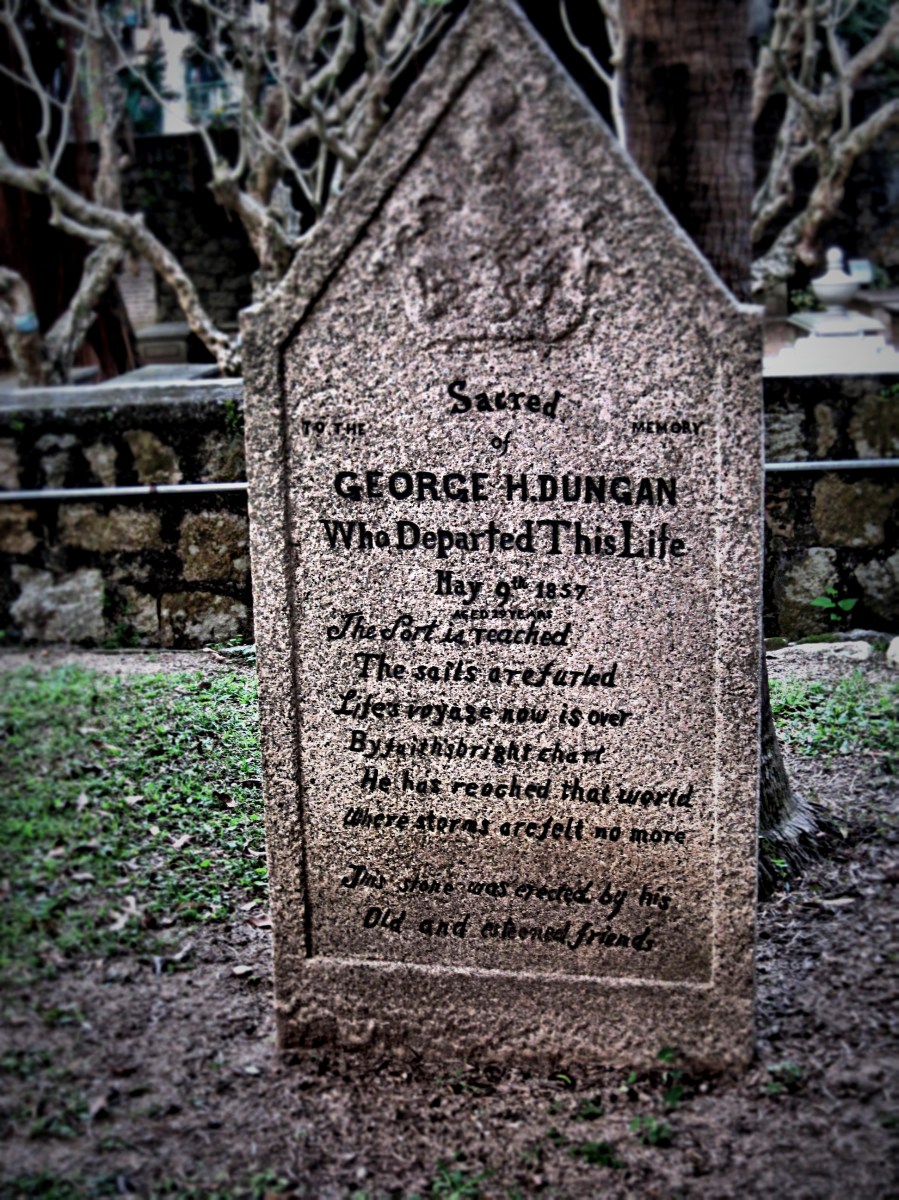 Sacred
TO THE MEMORY
of
GEORGE H. DUNGAN
Who Departed This Life
May 9th 1857
AGED 29 YEARS
The Port is reached
The sails are furled
Life's voyage now is over
By faith's bright chart
He has reached that world
Where storms are felt no more
This stone was erected by his
Old and esteemed friends